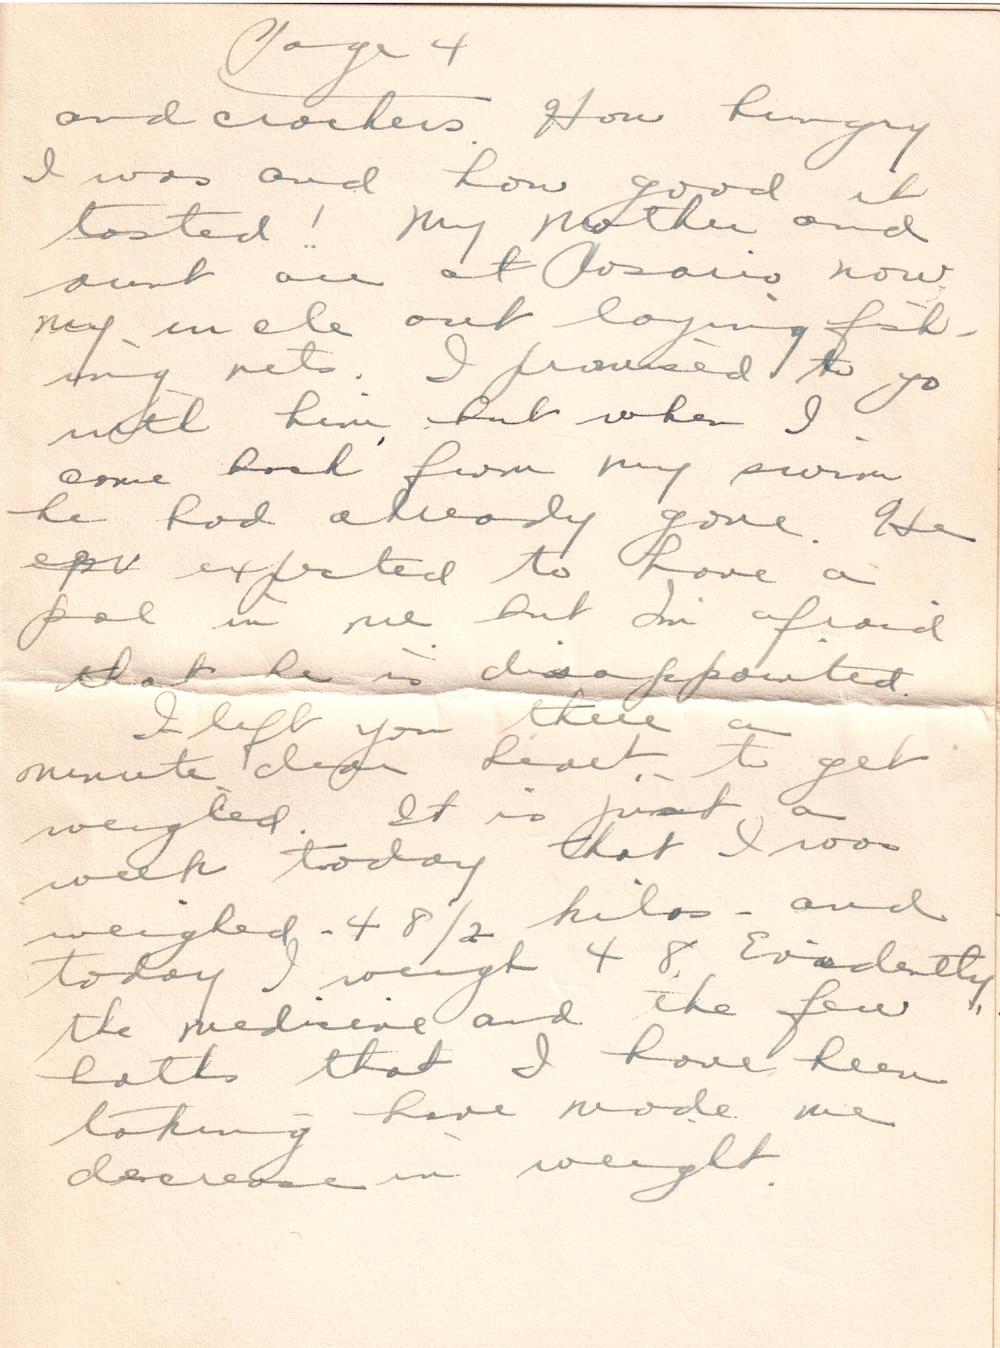 Page 4
and crackers. How hungry
I was and how good it
tasted! My mother and
aunt are at Rosario now,
my uncle out laying fish-
ing nets. I promised to go
with him, but when I
came back from my swim
he had already gone. He
expected to have a
pal in me but I'm afraid
that he is disappointed.
I left you there a
minute dear heart, to get
weighed. It is just a
week today that I was
weighed - 48 1/2 kilos - and
today I weigh 48. Evidently,
the medicine and the few
baths that I have been
taking have made me
decrease in weight.